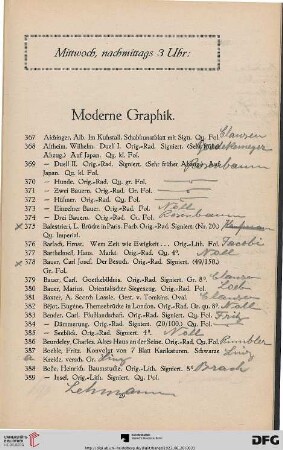 Mittwoch, nachmittags 3 Uhr:
Moderne Graphik.
367 Aichinger, Alb. Im Kuhstall. Schabkunstblatt mit Sign. Qu. Fol. Clausen
368 Altheim, Wilhelm. Duell I. Orig.-Rad. Signiert. (Sehr früher
Abzug.) Auf Japan. Qu. kl. Fol.
369 — Duell II. Orig.-Rad. Signiert. (Sehr früher Abzug.) Auf
Japan. Qu. kl. Fol. Rosenbaum
370 — Hunde. Orig.-Rad. Qu. gr. Fol.
371 — Zwei Bauern. Orig.-Rad. Gr. Fol.
372 — Hühner. Orig.-Rad. Qu. Fol.
373 — Einzelner Bauer. Orig.-Rad. Fol. Noll
374 — Drei Bauern. Orig.-Rad. Gr. Fol. Rosenbaum
375 Balestrieri, L. Brücke in Paris. Farb. Orig.-Rad. Signiert. (Nr. 200.)
Qu. Imperial.
376 Barlach, Ernst. Wem Zeit wie Ewigkeit . . . Orig.-Lith. Fol. Jacobi
377 Barthelmeß, Hans. Markt. Orig.-Rad. Qu. 4°. Noll
378 Bauer, Carl Josef. Der Besuch. Orig.-Rad. Signiert. (49/150.)
Gr. Fol.
379 Bauer, Carl. Goethebildnis. Orig.-Rad. Signiert. Gr. 8°. Clausen
380 Bauer, Marius. Orientalischer Siegeszug. Orig.-Rad. Gr. Fol. Loeb
381 Baxter, A. Scorch Lassie. Gest. v. Tomkins. Oval. Clausen
382 Béjot, Eugène. Themsebrücke in London. Orig.-Rad. Qu. gr. 8°. Noll
383 Bender, Carl. Flußlandschaft. Orig.-Rad. Signiert. Qu. Fol. Fritz
384 — Dämmerung. Orig.-Rad. (20/100.) Qu. Fol.
385 — Seeblick. Orig.-Rad. Signiert. 4°. Noll
386 Beurdeley, Charles. Altes Haus an der Seine. Orig.-Rad. Qu. Fol.
387 Boehle, Fritz. Konvolut von 7 Blatt Karikaturen. Schwarze
Kreide, versch. Gr.
388 Bothe, Heinrich. Baumstudie. Orig.-Lith. Signiert. 8°.
389 — Insel. Orig.-Lith. Signiert. Qu. Fol.
Lehmann
DFG